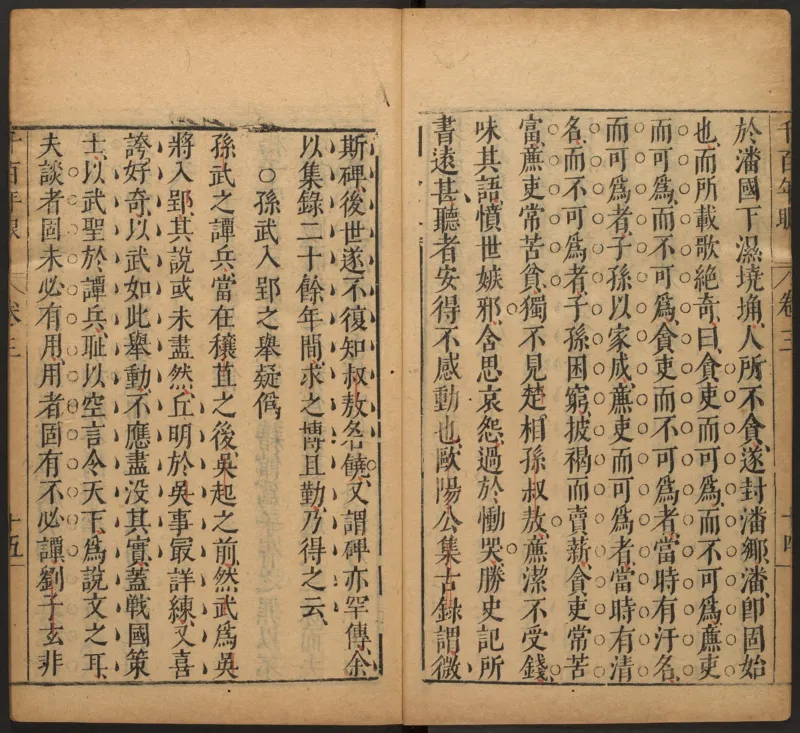 於潘國下濕境埆人所不貪遂封潘鄉潘即固始
也而所載歌絶奇曰貪吏而可爲而不可爲廉吏
而可爲而不可爲貪吏而不可爲者當時有汙名
而可爲者子孫以家成廉吏而可爲者當時有清
名而不可爲者子孫困窮披褐而賣薪貪吏常苦
富廉吏常苦貧獨不見楚相孫叔敖廉潔不受錢
味其語憤世嫉邪舍思哀怨過於慟哭勝史記所
書遠甚聽者安得不感動也歐陽公集古錄謂微
千百年眼 卷三 十四
斯碑後世遂不復知叔敖名饒又謂碑亦罕傳余
以集錄二十餘年間求之博且勤乃得之云
○孫武入郢之舉疑僞
孫武之譚兵當在穰苴之後吳起之前然武爲吳
將入郢其說或未盡然丘明於吳事最詳練又喜
誇好奇以武如此舉動不應盡没其實蓋戰國策
士以武聖於譚兵耻以空言令天下爲說文之耳
夫談者固未必有用用者固有不必譚劉子玄非
千百年眼 卷三 十五